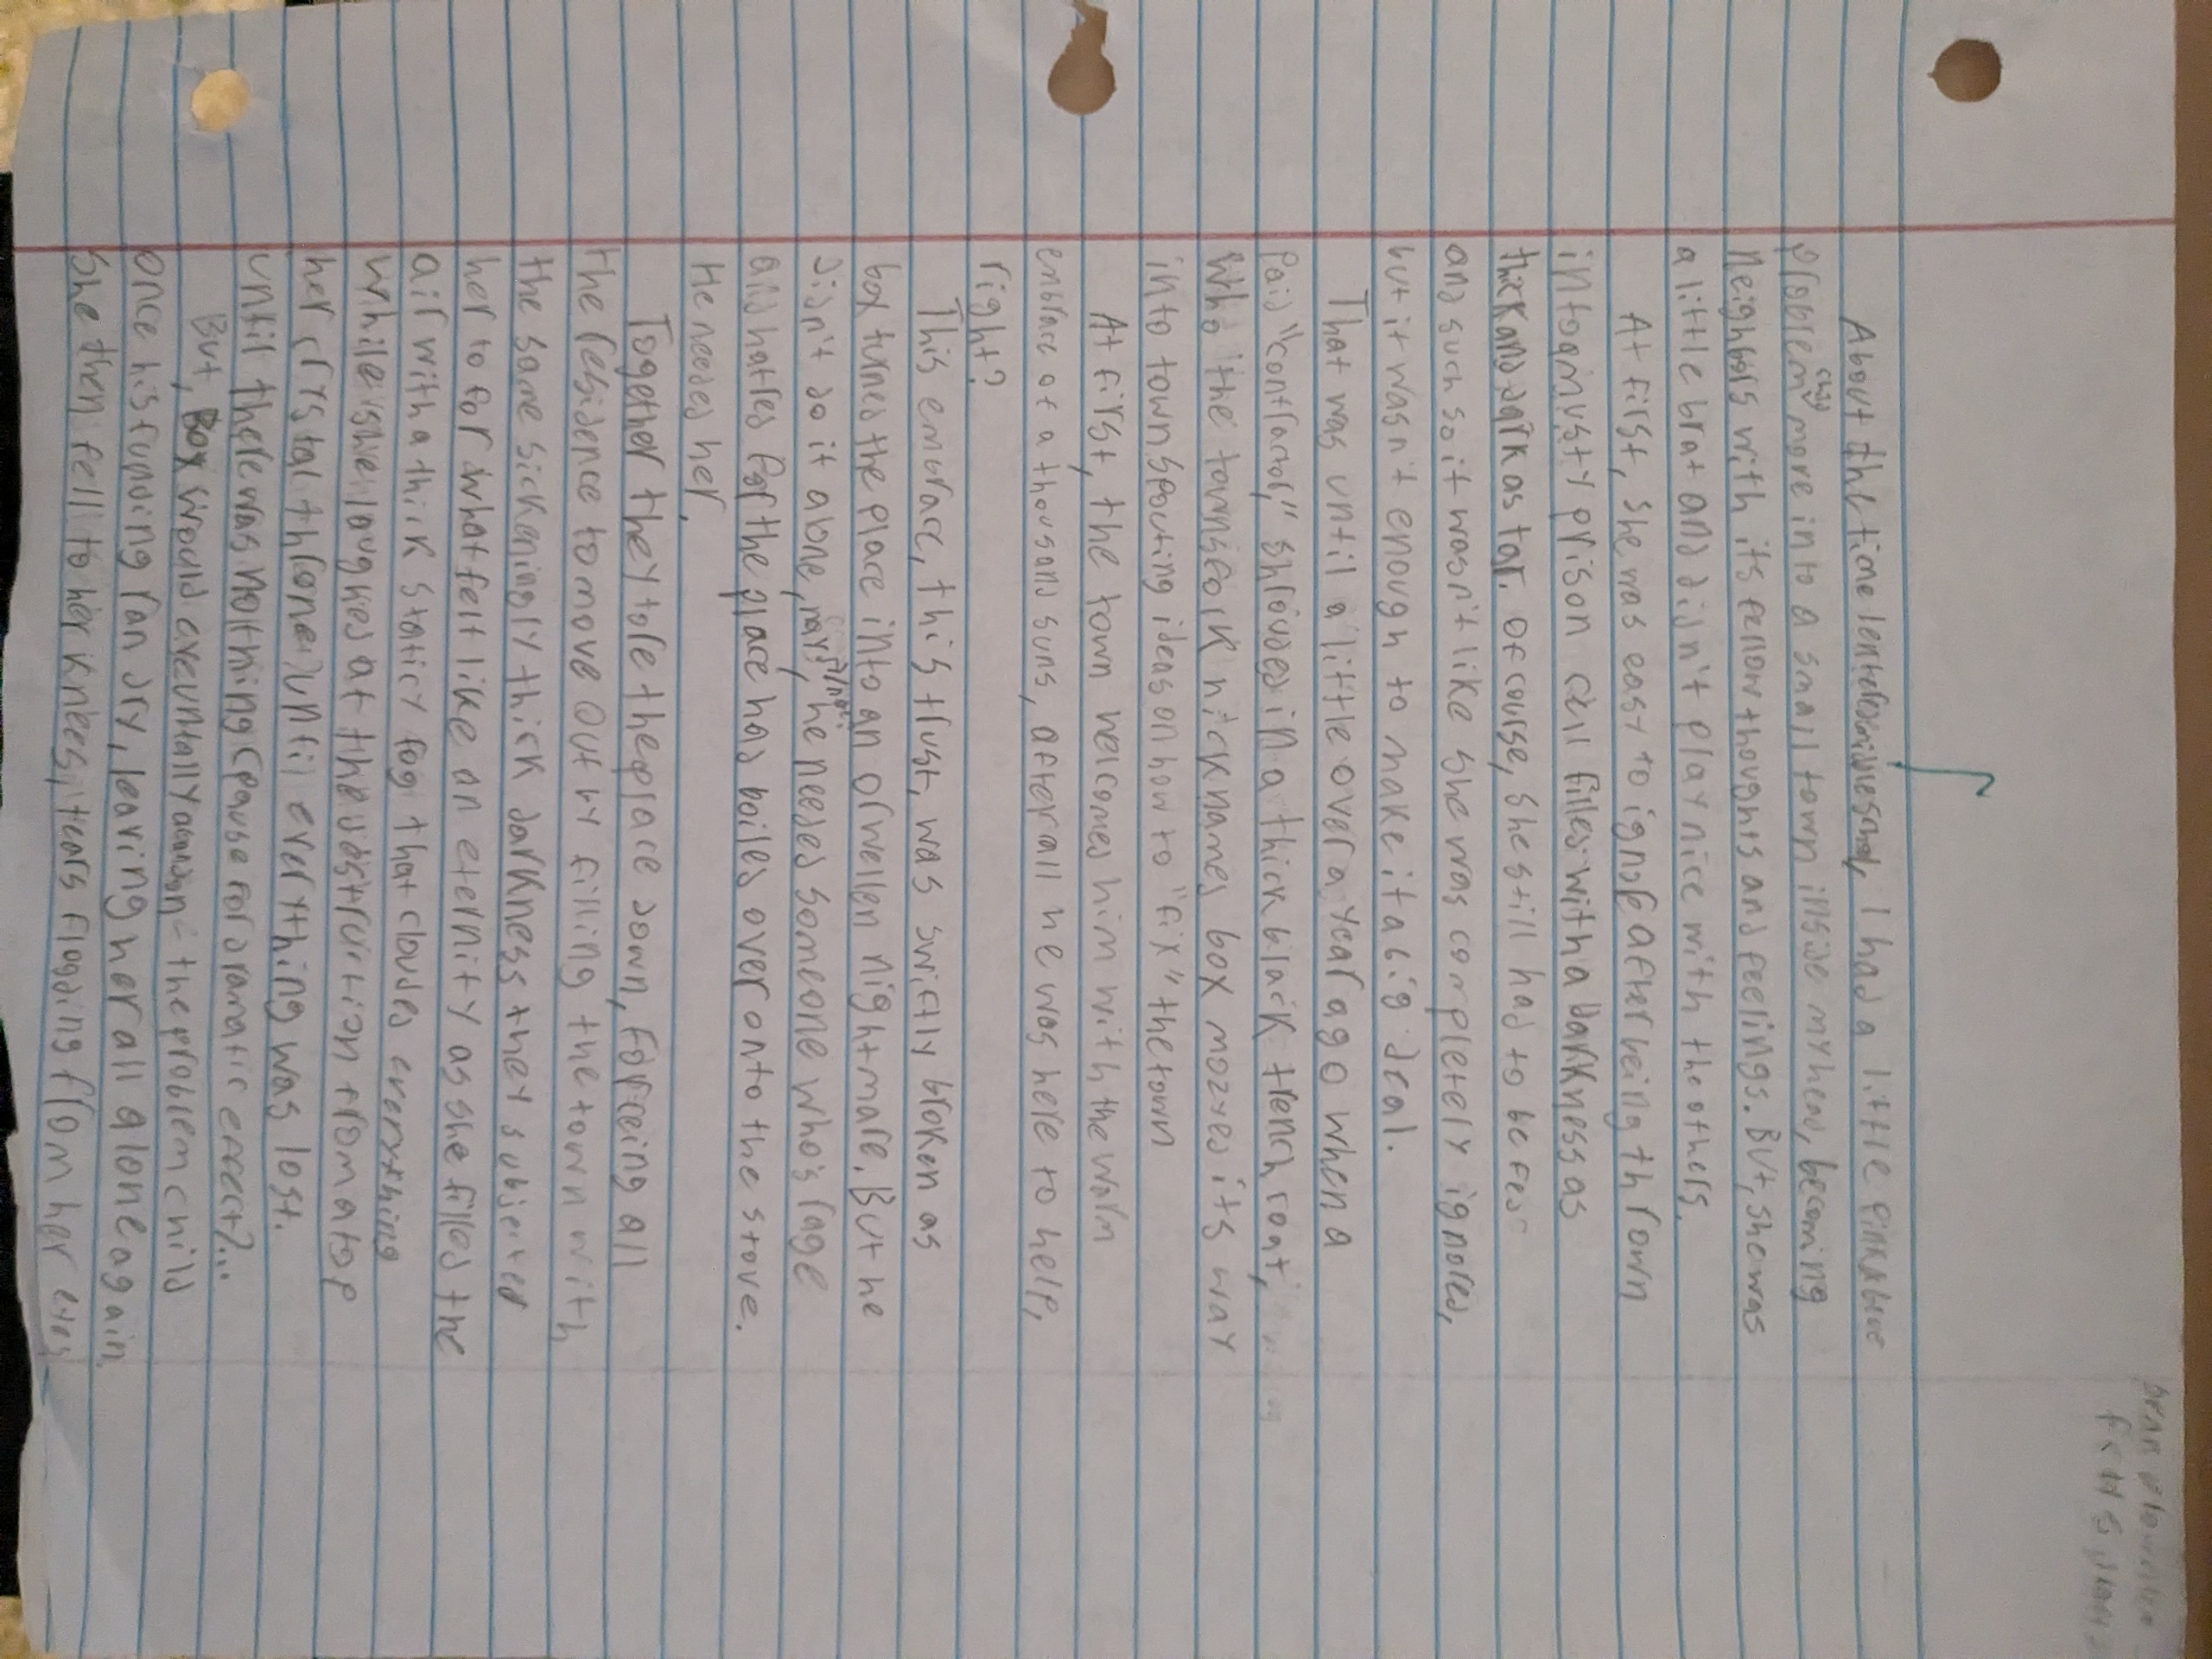 About the time I entered middle school, I had a little pink & blue
problem child move into a small town inside my head, becoming
neighbors with its fellow thoughts and feelings. But, she was
a little brat and didn't play nice with the others.
At first, she was easy to ignore after being thrown
into a musty prison cell filled with a darkness as
thick and dark as tar. Of course, she still had to be fed
and such so it wasn't like she was completely ignored,
but it wasn't enough to make it a big deal.
That was until a little over a year ago when a
paid "contractor," shrouded in a thick black trench coat,
who the townsfolk nicknamed box mozyed its way
into town spouting ideas on how to "fix" the town
At first, the town welcomed him with the warm
embrace of a thousand suns, after all he was here to help,
right?
This embrace, this trust, was swiftly broken as
box turned the place into an orwellen nightmare. But he
didn't do it alone, nay, he needed someone who's rage
and hatred for the place had boiled over onto the stove.
He needed her.
Together they tore the place down, forceing all
the residence to move out by filling the town with
the same sickeningly thick darkness they subjected
her to for what felt like an eternity as she filled the
air with a thick staticy fog that clouded everything
while she laughed at the destruction from atop
her crystal throne until everything was lost.
until there was nothing (pause for dramatic effect?...
But, Box would eventually abandon the problem child
once his funding ran dry, leaving her all alone again.
She then fell to her knees, tears flooding from her eyes